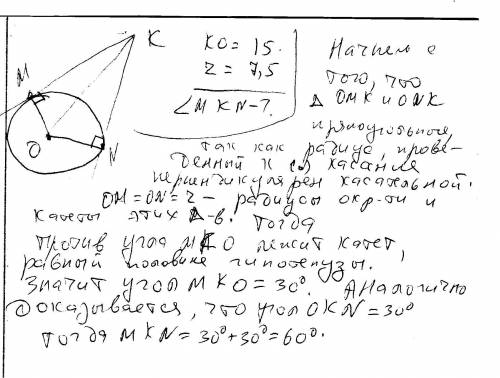 K
KO = 15.
r = 7,5
∠MKN - ?
M
O
N
Начнем с
того, что
Δ OMK и ONK
прямоугольные,
так как радиус, прове-
денный к т. касания
перпендикулярен касательной.
OM = ON = r – радиусы окр-ти и
катеты этих Δ-в. Тогда
против угла MKO лежит катет,
равный половине гипотенузы.
Значит угол MKO = 30°. Аналогично
доказывается, что угол OKN = 30°
Тогда MKN = 30° + 30° = 60°.